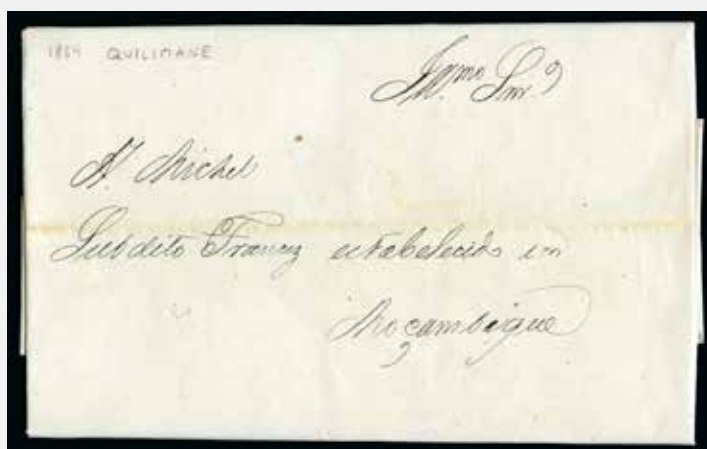 1864 QUILIMANE
Illmo Snr.
A. Michel
Subdito Francez estabelecido em
Moçambique